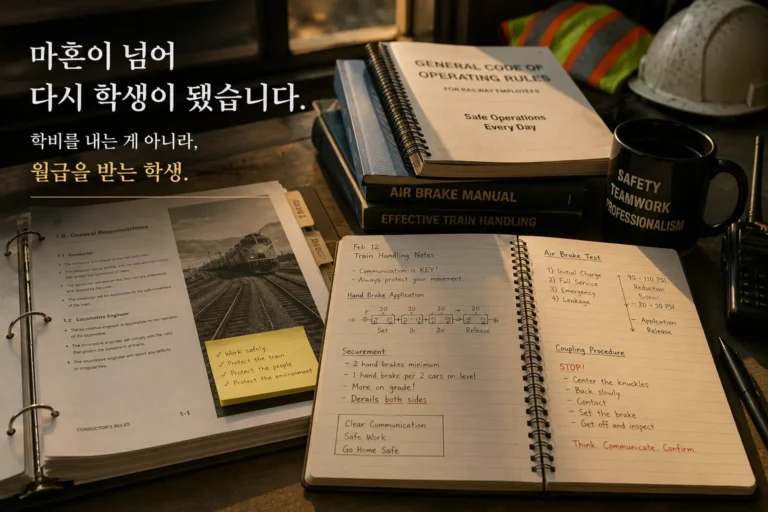 마흔이 넘어
다시 학생이 됐습니다.
학비를 내는 게 아니라,
월급을 받는 학생.
GENERAL CODE OF
OPERATING RULES
FOR RAILWAY EMPLOYEES
Safe Operations
Every Day
AIR BRAKE MANUAL
EFFECTIVE TRAIN HANDLING
SAFETY
TEAMWORK
PROFESSIONALISM
1.0 General Responsibilities
1.1 Conductor
1.2 Locomotive Engineer
✓ Work safely.
✓ Protect the train
✓ Protect the people
✓ Protect the environment
1-1
CONDUCTOR'S RULES
Feb. 12
Train Handling Notes
- Communication is KEY!
- Always protect your movement.
Hand Brake Application
20 20 20 20
Set Release
Securement
- 2 hand brakes minimum
- 1 hand brake per 2 cars on level
- More on grade!
- Derails both sides
Clear Communication
Safe Work
Go Home Safe
Air Brake Test
1) Initial Charge
2) Full Service
3) Emergency
4) Leakage
90 - 110 PSI
Reduction
20 - 30 PSI
Application
Release
Coupling Procedure
STOP!
- Center the knuckles
- Back slowly
- Contact
- Set the brake
- Get off and inspect
Think. Communicate. Confirm.